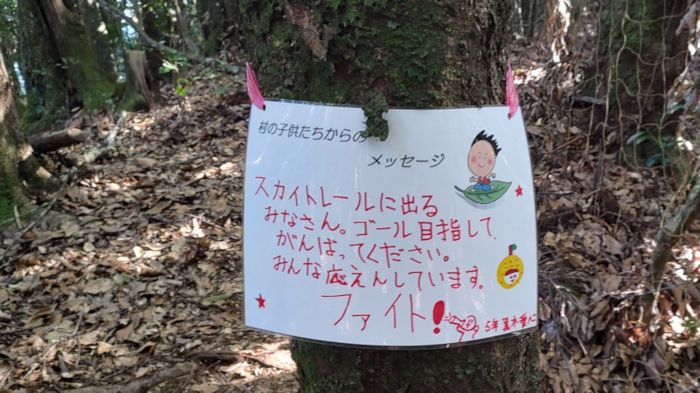 村の子供たちからの
メッセージ
スカイトレールに出る
みなさん。ゴール目指して、
がんばってください。
みんな応えんしています。
ファイト!
5年